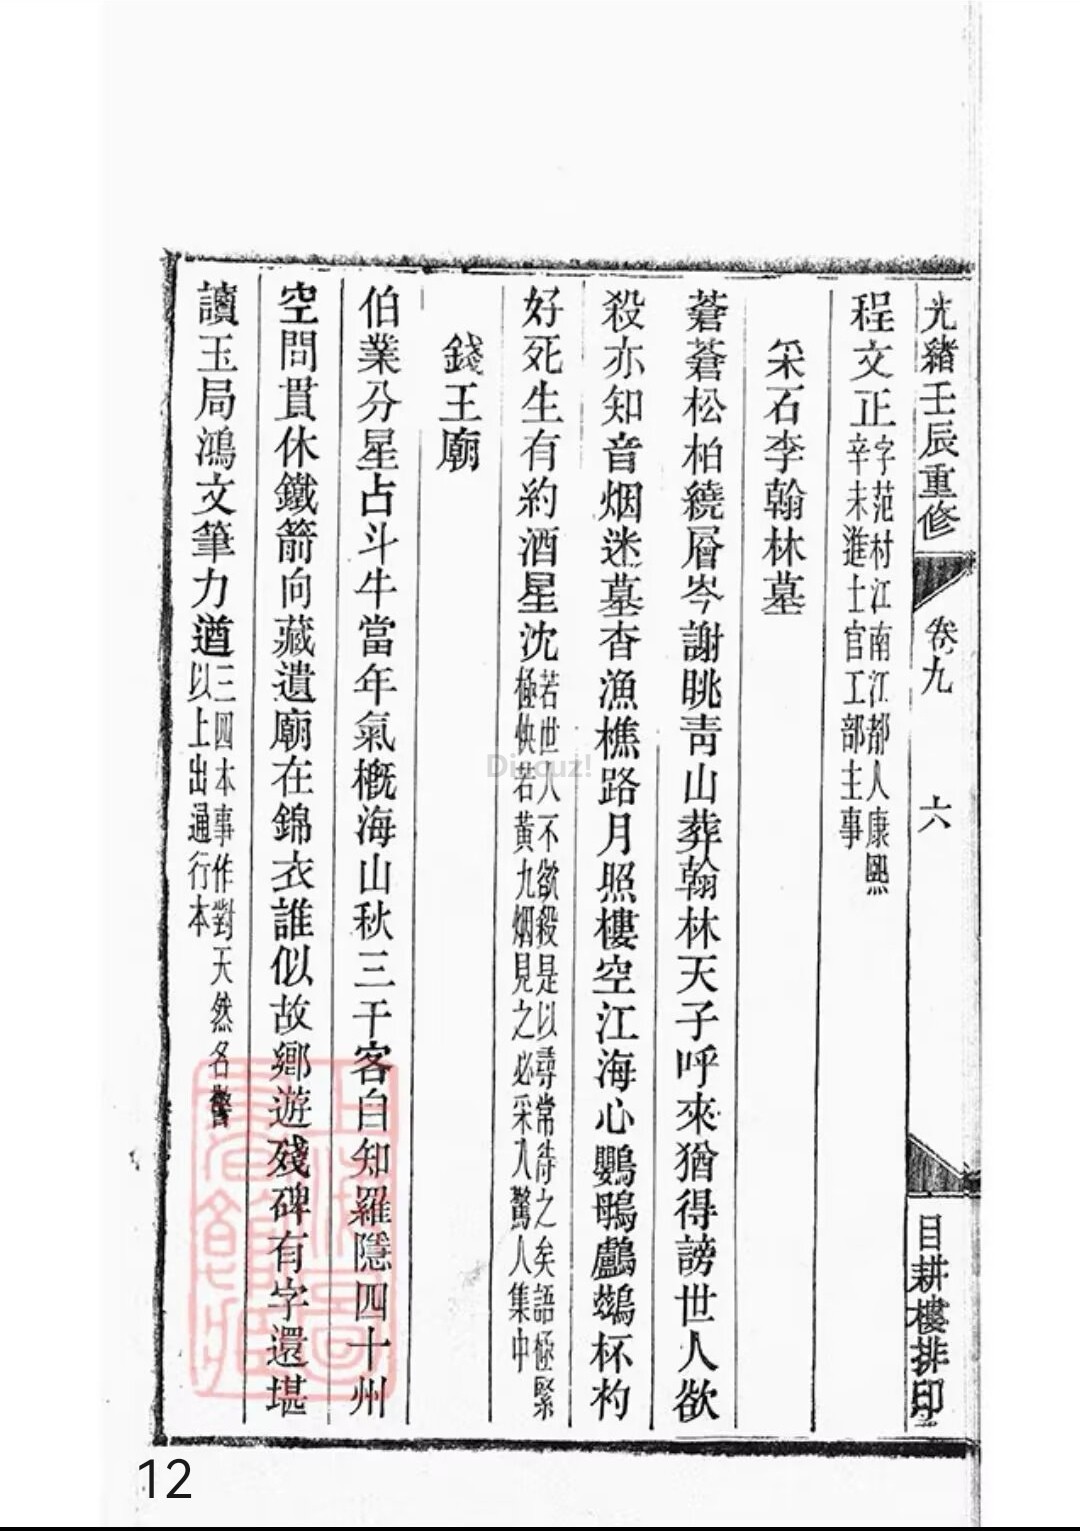 光緒壬辰重修
卷九
六
目耕樓排印
程文正字范村江南江都人康熙
辛未進士官工部主事
采石李翰林墓
蒼蒼松柏繞層岑謝眺靑山葬翰林天子呼來猶得謗世人欲
殺亦知音烟迷墓杳漁樵路月照樓空江海心鸚鵡鸕鶿杯杓
好死生有約酒星沈若世人不欲殺是以尋常待之矣語極緊
極快若黃九烟見之必采入驚人集中
錢王廟
伯業分星占斗牛當年氣槪海山秋三千客自知羅隱四十州
空問貫休鐵箭向藏遺廟在錦衣誰似故鄉遊殘碑有字還堪
讀玉局鴻文筆力遒三四本事作對天然名警
以上出通行本
Discuz!
12